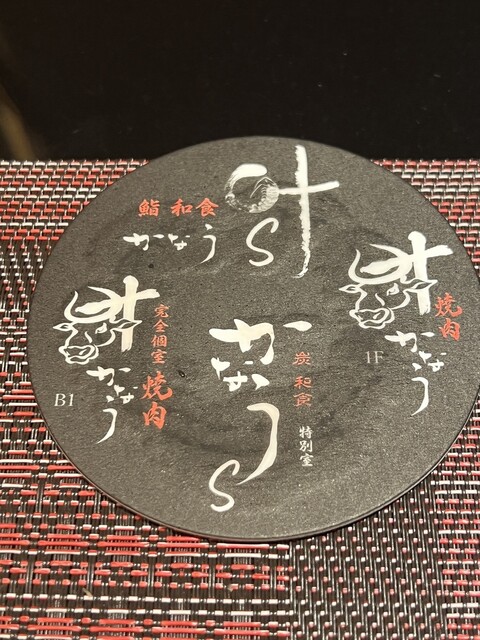 叶
S
鮨 和食
かなう
叶
焼肉
かなう
1F
叶
完全個室
焼肉
かなう
B1
かなう
S
炭 和食
特別室